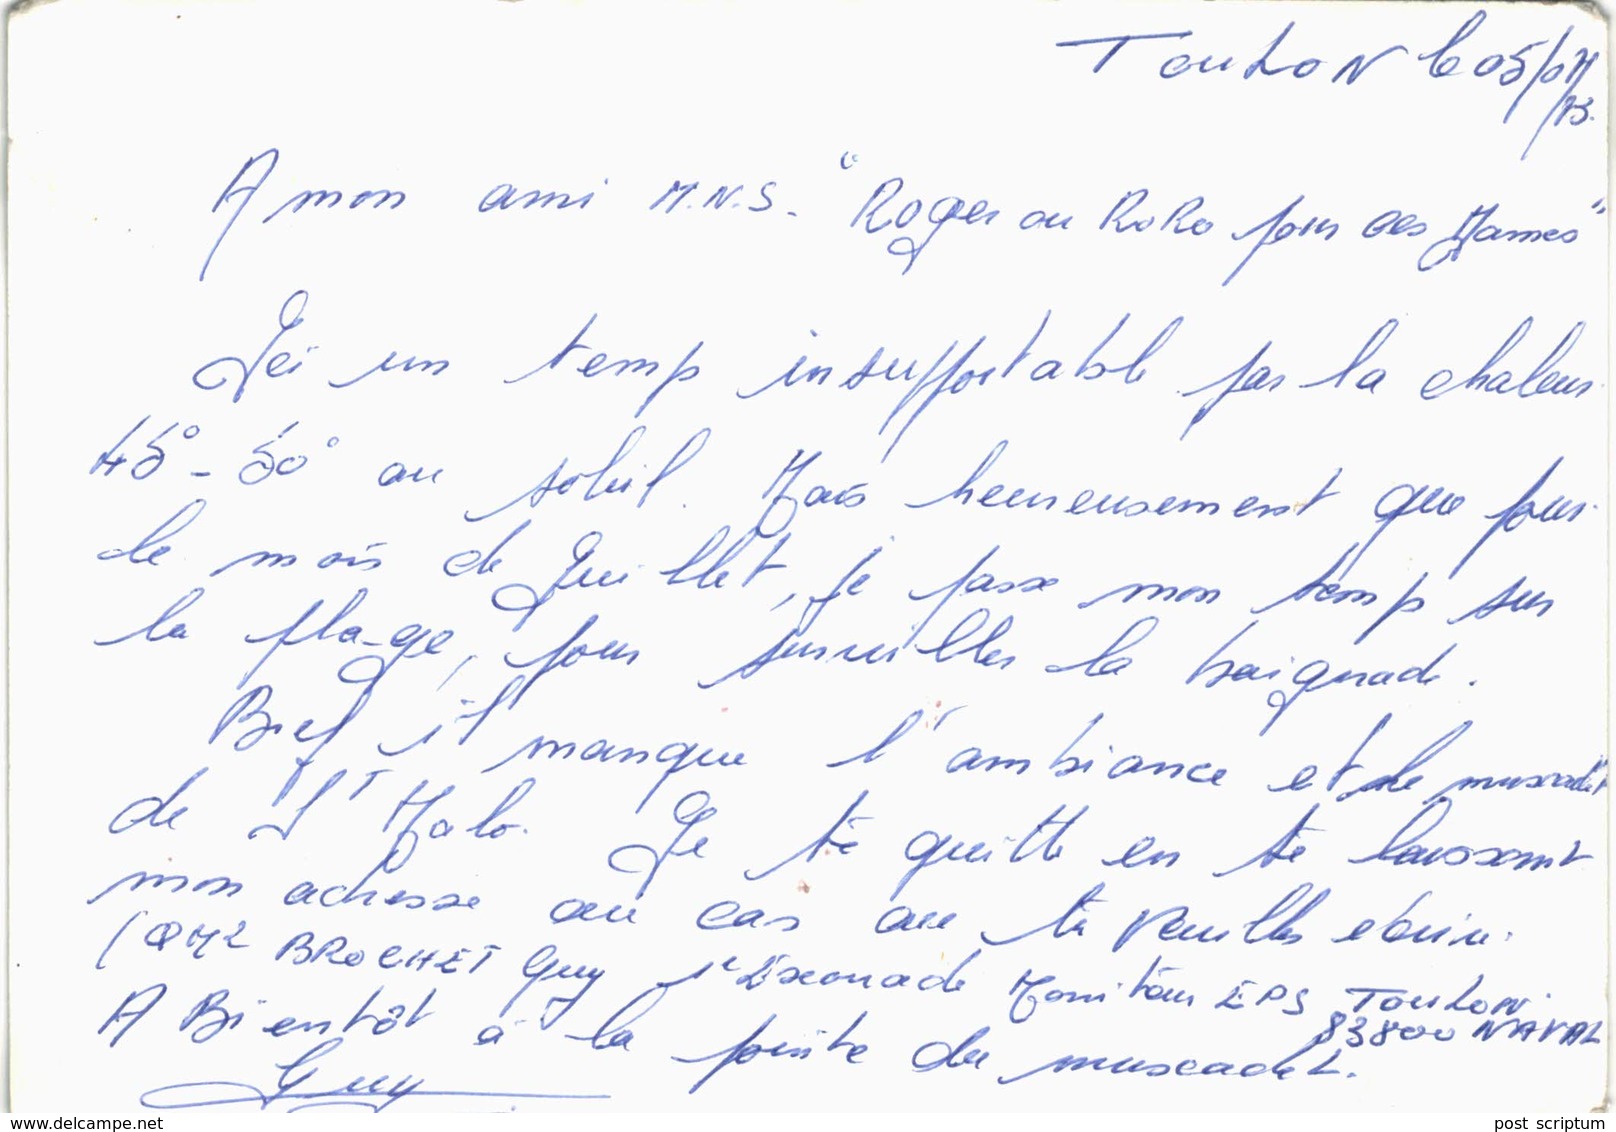 Toulon le 05/07/
73.
A mon ami M.N.S. "Roger ou RoRo pour ces Dames"
Ici un temps insupportable par la chaleur
45° - 50° au soleil. Mais heureusement que pour
le mois de Juillet, je passe mon temps sur
la plage, pour surveiller la baignade.
Bref il manque l'ambiance et le muscadet
de St Malo. Je te quitte en te laissant
mon adresse au cas ou tu veuilles écrire.
(QM2 BROCHET Guy 1e Escouade Moniteur EPS Toulon
83800 NAVAL
A Bientôt à la pointe du muscadet.
Guy
www.delcampe.net post_scriptum